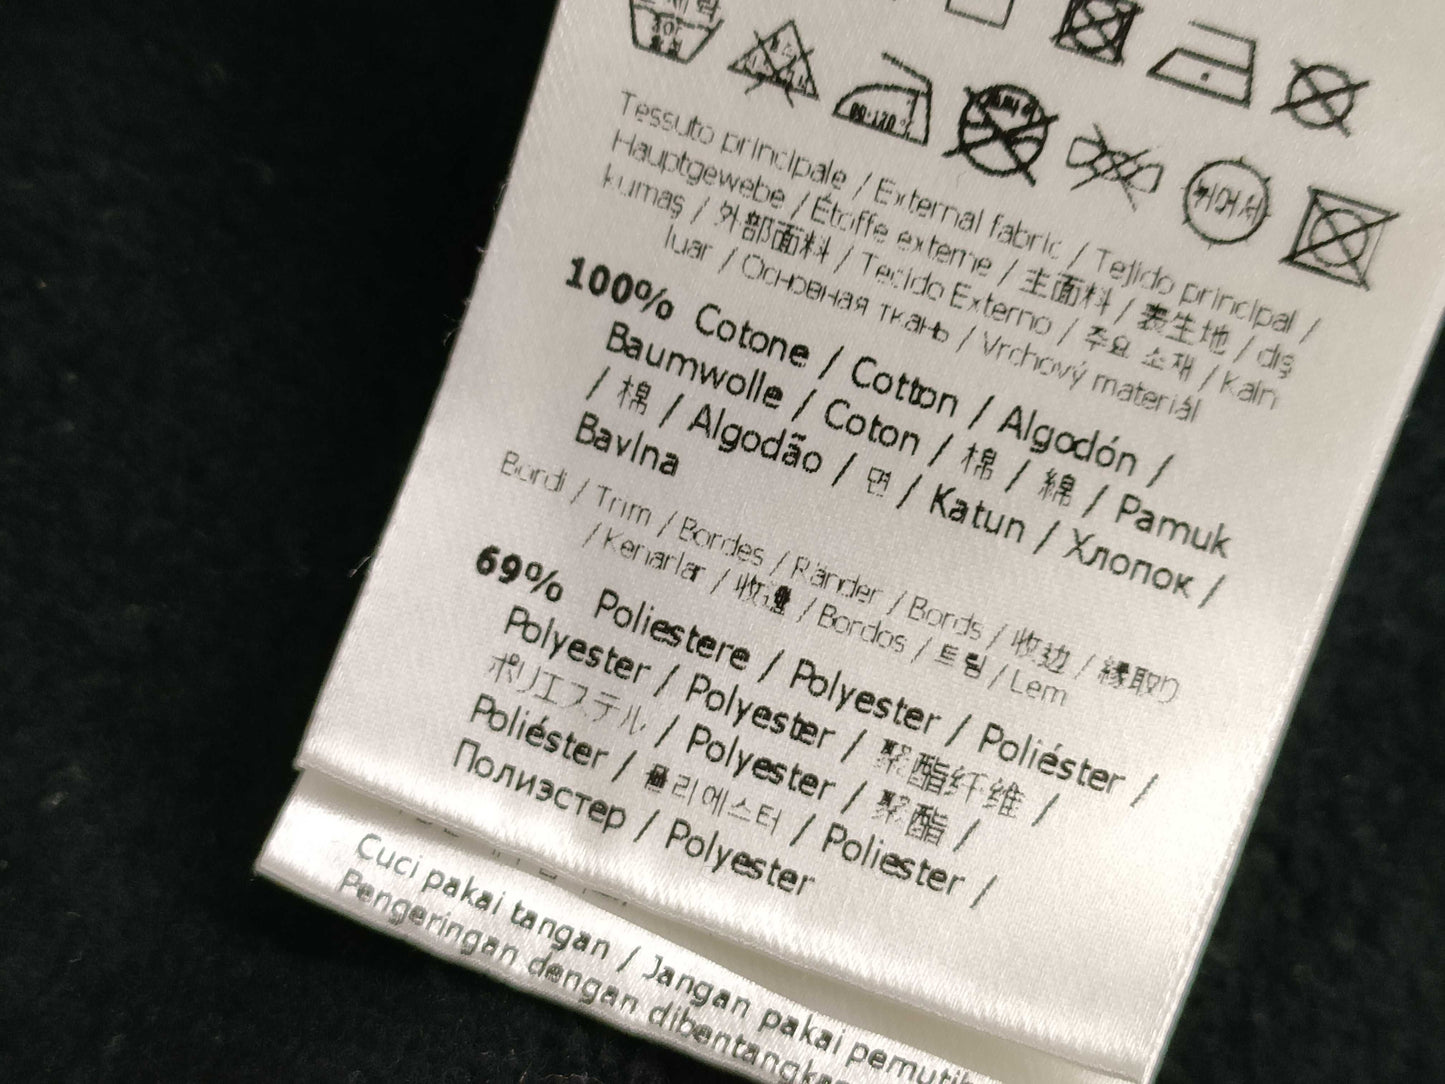 80-120℃
드라이
커어서
Tessuto principale / External fabric / Tejido principal /
Hauptgewebe / Étoffe externe / 主面料 / 表生地 / dış
kumaş / 外部面料 / Tecido Externo / 주요 소재 / Kain
luar / Основная ткань / Vrchový materiál
100% Cotone / Cotton / Algodón /
Baumwolle / Coton / 棉 / 綿 / Pamuk
/ 棉 / Algodão / 면 / Katun / Хлопок /
Bavlna
Bordi / Trim / Bordes / Ränder / Bords / 收边 / 縁取り
/ Kenarlar / 收邊 / Bordos / 트림 / Lem
69% Poliestere / Polyester / Poliéster /
Polyester / Polyester / 聚酯纤维 /
ポリエステル / Polyester / 聚酯 /
Poliéster / 폴리에스터 / Poliester /
Полиэстер / Polyester
Cuci pakai tangan / Jangan pakai
Pengeringan dengan